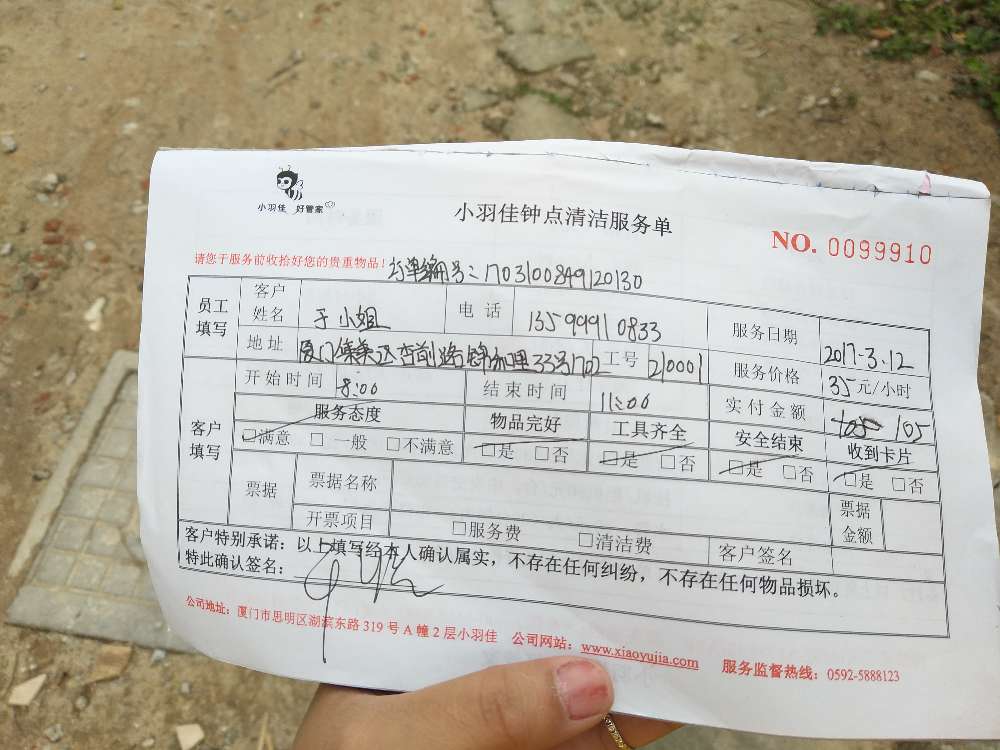 小羽佳 好管家
小羽佳钟点清洁服务单
NO. 0099910
请您于服务前收拾好您的贵重物品！订单编号：1703100849120130
员工填写 客户姓名 于小姐 电话 13599910833 服务日期 2017-3.12
地址 厦门集美区杏前路锦和里33号1702 工号 210001 服务价格 35元/小时
开始时间 8:00 结束时间 11:00 实付金额 105
客户填写 服务态度 物品完好 工具齐全 安全结束 收到卡片
□满意 □一般 □不满意 □是 □否 □是 □否 □是 □否 □是 □否
票据 票据名称 票据金额
开票项目 □服务费 □清洁费 客户签名
客户特别承诺：以上填写经本人确认属实，不存在任何纠纷，不存在任何物品损坏。
特此确认签名：
公司地址：厦门市思明区湖滨东路319号A幢2层小羽佳 公司网站：www.xiaoyujia.com 服务监督热线：0592-5888123